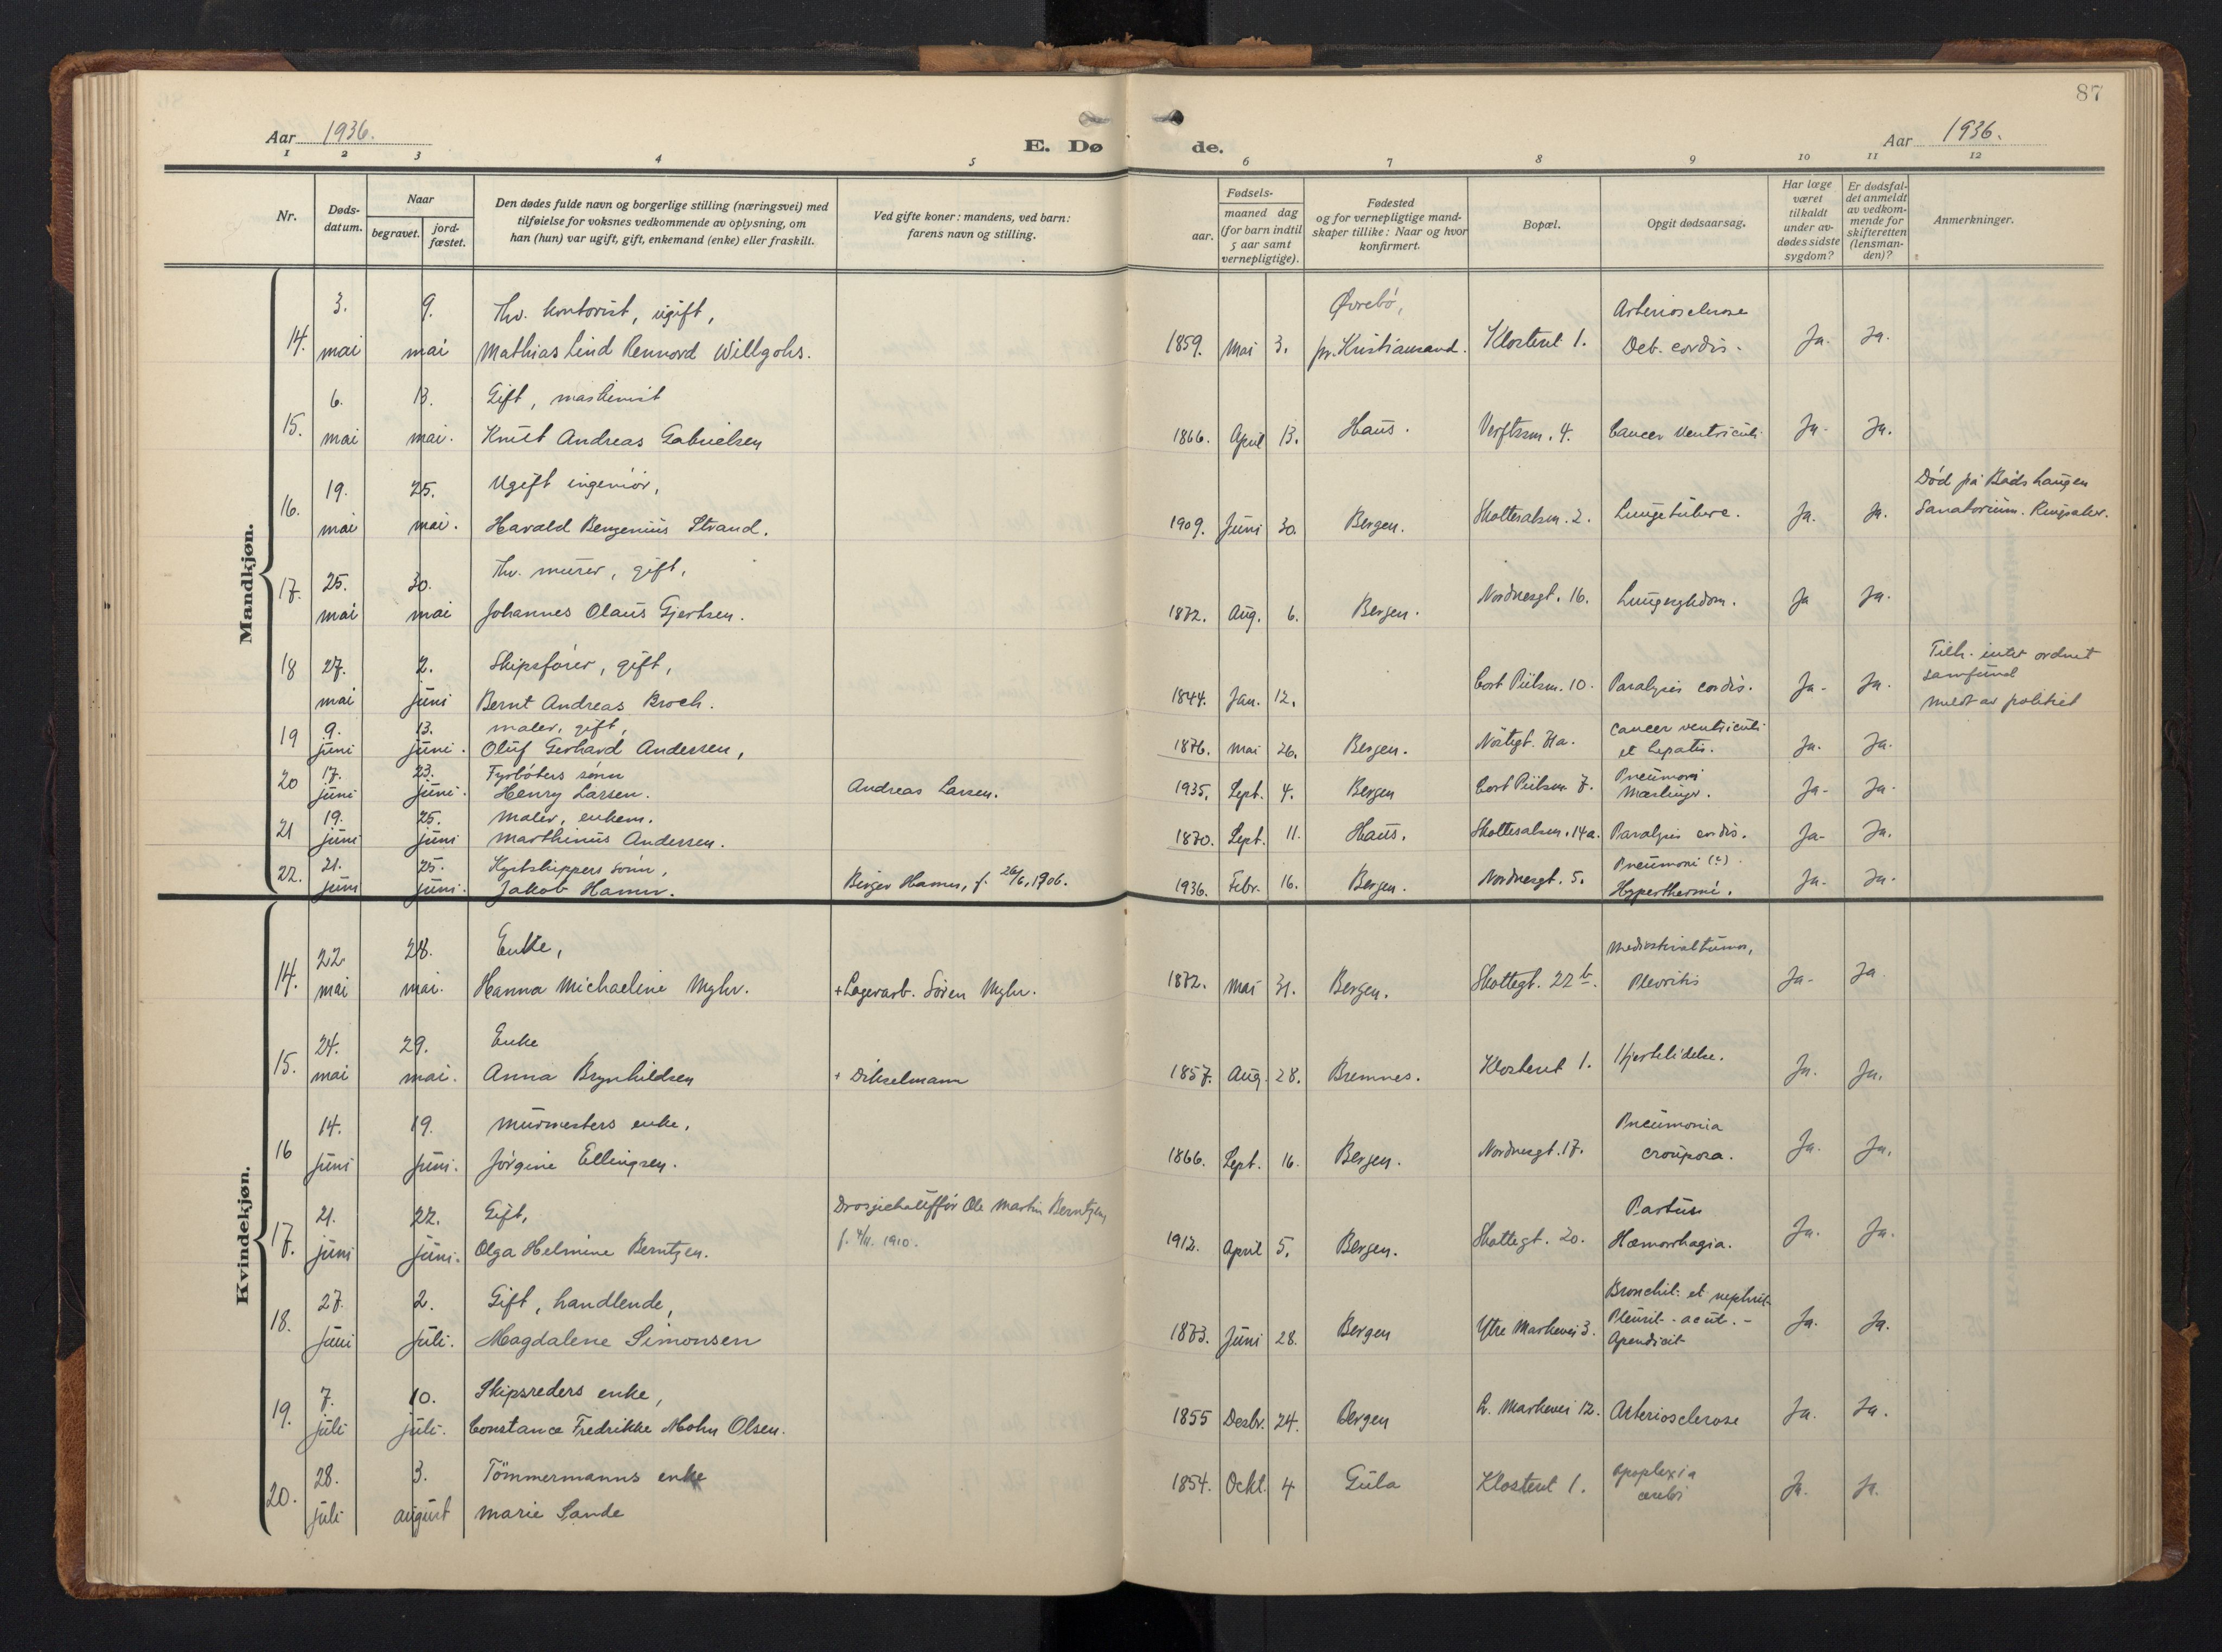 87
Aar 1936.
E. Døde.
Aar 1936.
1 2 3 4 5 6 7 8 9 10 11 12
Nr.
Døds-
datum.
Naar
begravet.
jord-
fæstet.
Den dødes fulde navn og borgerlige stilling (næringsvei) med
tilføielse for voksnes vedkommende av oplysning, om
han (hun) var ugift, gift, enkemand (enke) eller fraskilt.
Ved gifte koner: mandens, ved barn:
farens navn og stilling.
Fødsels-
aar.
maaned dag
(for barn indtil
5 aar samt
vernepligtige).
Fødested
og for vernepligtige mand-
skaper tillike: Naar og hvor
konfirmert.
Bopæl.
Opgit dødsaarsag.
Har læge
været
tilkaldt
under av-
dødes sidste
sygdom?
Er dødsfal-
det anmeldt
av vedkom-
mende for
skifteretten
(lensman-
den)?
Anmerkninger.
Mandkjøn.
3. 9. Fhv. kontorist, ugift, Øvrebö, Arteriosclerose
14. mai mai Mathias Lind Rennord Willgohs. 1859. Mai 3. pr. Kristiansand. Klosteret 1. Deb. cordis. Ja. Ja.
6. 13. Gift, maskinist
15. mai mai. Knut Andreas Gabrielsen 1866. April 13. Haus. Verftsm. 4. Cancer ventriculi. Ja. Ja.
19. 25. Ugift ingeniör, Död på
16. mai mai. Harald Bengenius Strand. 1909. Juni 30. Bergen. Skottesalm. 2. Lungetuberc. Ja. Ja. Sanatorium. Ringsaker.
25. 30. Fhv. murer, gift,
17. mai mai Johannes Olaus Gjertsen. 1872. Aug. 6. Bergen. Nordnesgt. 16. Lungesykdom. Ja Ja.
18 27. 2. Skipsförer, gift, Tilh. intet ordnet
samfund
mai juni Bernt Andreas Broch. 1844. Jan. 12. Cort Piilsm. 10. Paralysis cordis. Ja. Ja. meldt av politiet
19 9. 13. maler, gift, Cancer ventriculi
juni juni. Oluf Gerhard Andersen, 1876. mai 26. Bergen. Nöstegt. et hepatis. Ja. Ja.
20 17. 23. Fyrböters sönn Pneumoni
juni juni. Henry Larsen. Andreas Larsen. 1935. Sept. 4. Bergen Cort Piilsm 7. Mæslinger. Ja. Ja.
21 19. 25. Maler, enkem.
juni juni Marthinus Andersen. 1870. Sept. 11. Haus. Skottesalm. 14a. Paralysis cordis. Ja. Ja.
22. 21. 25. Kystskippers sönn, Pneumoni (?)
juni juni. Jakob Hamre. Birger Hamre, f. 26/6. 1906. 1936. Febr. 16. Bergen. Nordnesgt. 5. Hyperthermi. Ja. Ja.
Kvindekjøn.
22. 28. Enke, Mediastinaltumor,
14. mai mai. Hanna Michaeline Myhr. + Lagerarb. Sören Myhr. 1872. Mai 31. Bergen. Skottegt. 22 b. Plevritis Ja. Ja
24. 29. Enke
15. mai mai. Anna Brynhildsen + Dikselmann 1857. Aug. 28. Bremnes. Klosteret 1. Hjertelidelse. Ja. Ja.
14. 19. murmesters enke, Pneumonia
16 juni juni. Jörgine Ellingsen. 1866. Sept. 16. Bergen. Nordnesgt. 17. crouposa. Ja. Ja.
21. 22. Gift, Drosjechaufför Ole Martin Berntzen, Partus
17. juni juni. Olga Helmine Berntzen. f. 4/11. 1910. 1912. April 5. Bergen. Skottegt. 20. Hæmorrhagia. Ja. Ja.
27. 2. Gift, handlende, Bronchit. et nephrit.
18. juni juli. Magdalene Simonsen 1873. Juni 28. Bergen Ytre Markevei 3. Pleurit. acut. - Ja. Ja.
Apendicit
7. 10. Skipsreders enke,
19. juli juli. Constance Fredrikke Mohn Olsen. 1855 Desbr. 24. Bergen L. Markevei 12. Arteriosclerose Ja. Ja.
28. 3. Tömmermanns enke Apoplexia
20. juli august Marie Sande 1854. Ockt. 4 Gula Klosteret 1. cerebri Ja. Ja.